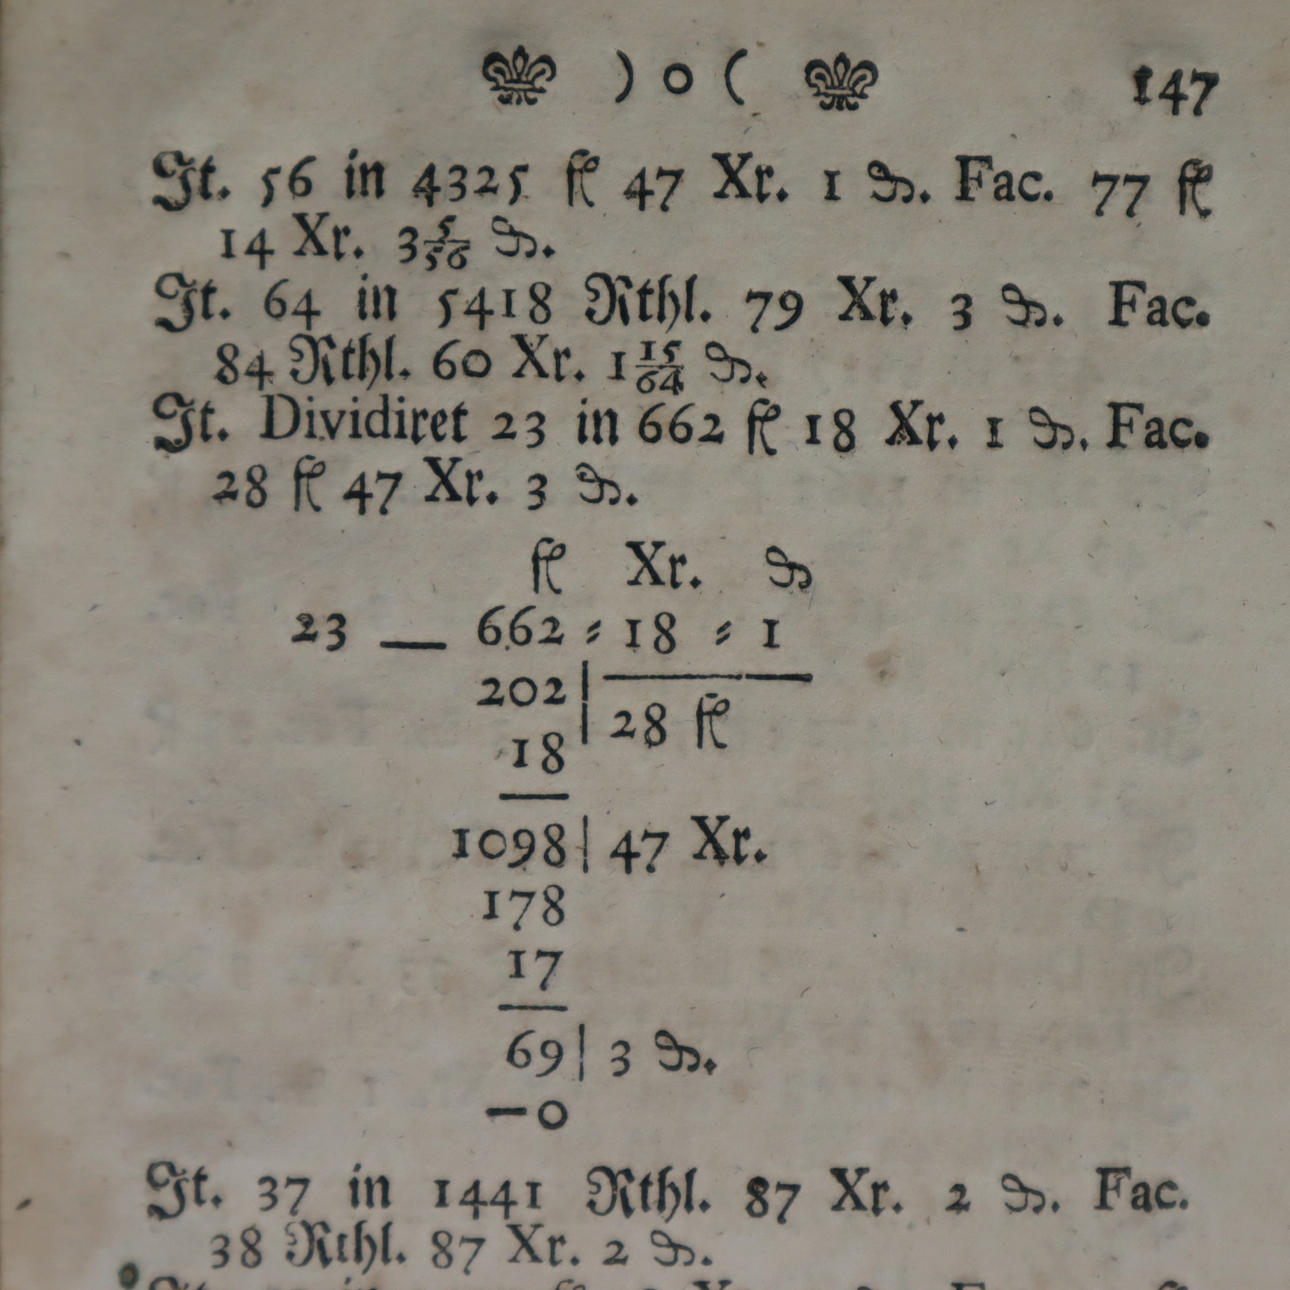 ) o ( 147
It. 56 in 4325 fl 47 Xr. 1 ₰. Fac. 77 fl
14 Xr. 3 5/56 ₰.
It. 64 in 5418 Rthl. 79 Xr. 3 ₰. Fac.
84 Rthl. 60 Xr. 1 15/64 ₰.
It. Dividiret 23 in 662 fl 18 Xr. 1 ₰. Fac.
28 fl 47 Xr. 3 ₰.
fl Xr. ₰
23 — 662 ⸗ 18 ⸗ 1
202 | 28 fl
18
1098 | 47 Xr.
178
17
69 | 3 ₰.
— 0
It. 37 in 1441 Rthl. 87 Xr. 2 ₰. Fac.
38 Rthl. 87 Xr. 2 ₰.